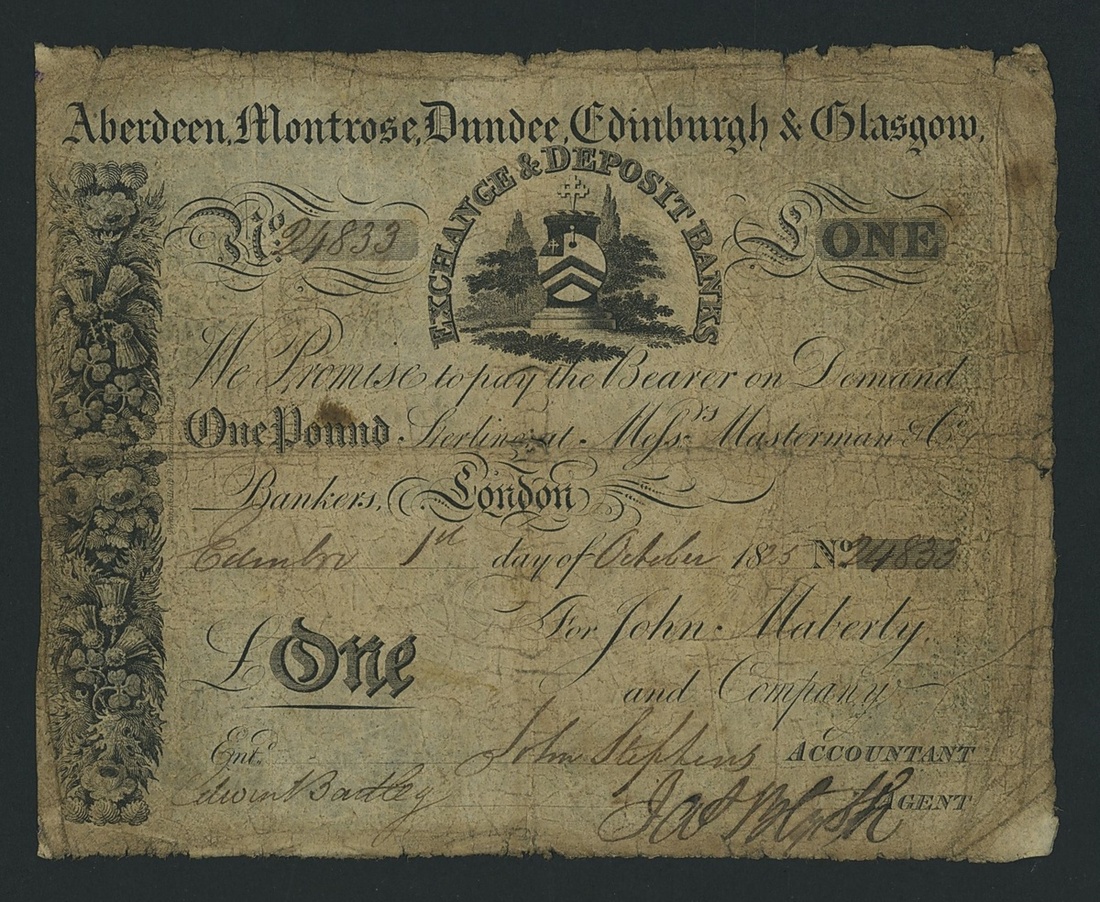 Aberdeen, Montrose, Dundee, Edinburgh & Glasgow,
EXCHANGE & DEPOSIT BANKS
No. 24833
£ ONE
We Promise to pay the Bearer on Demand
One Pound Sterling at Messrs. Masterman & Co.
Bankers, London
Edinbro 1st day of October 1825 No. 24833
For John Maberly
and Company
£ One
Entd. John Stephens ACCOUNTANT
Edwin Bartley AGENT